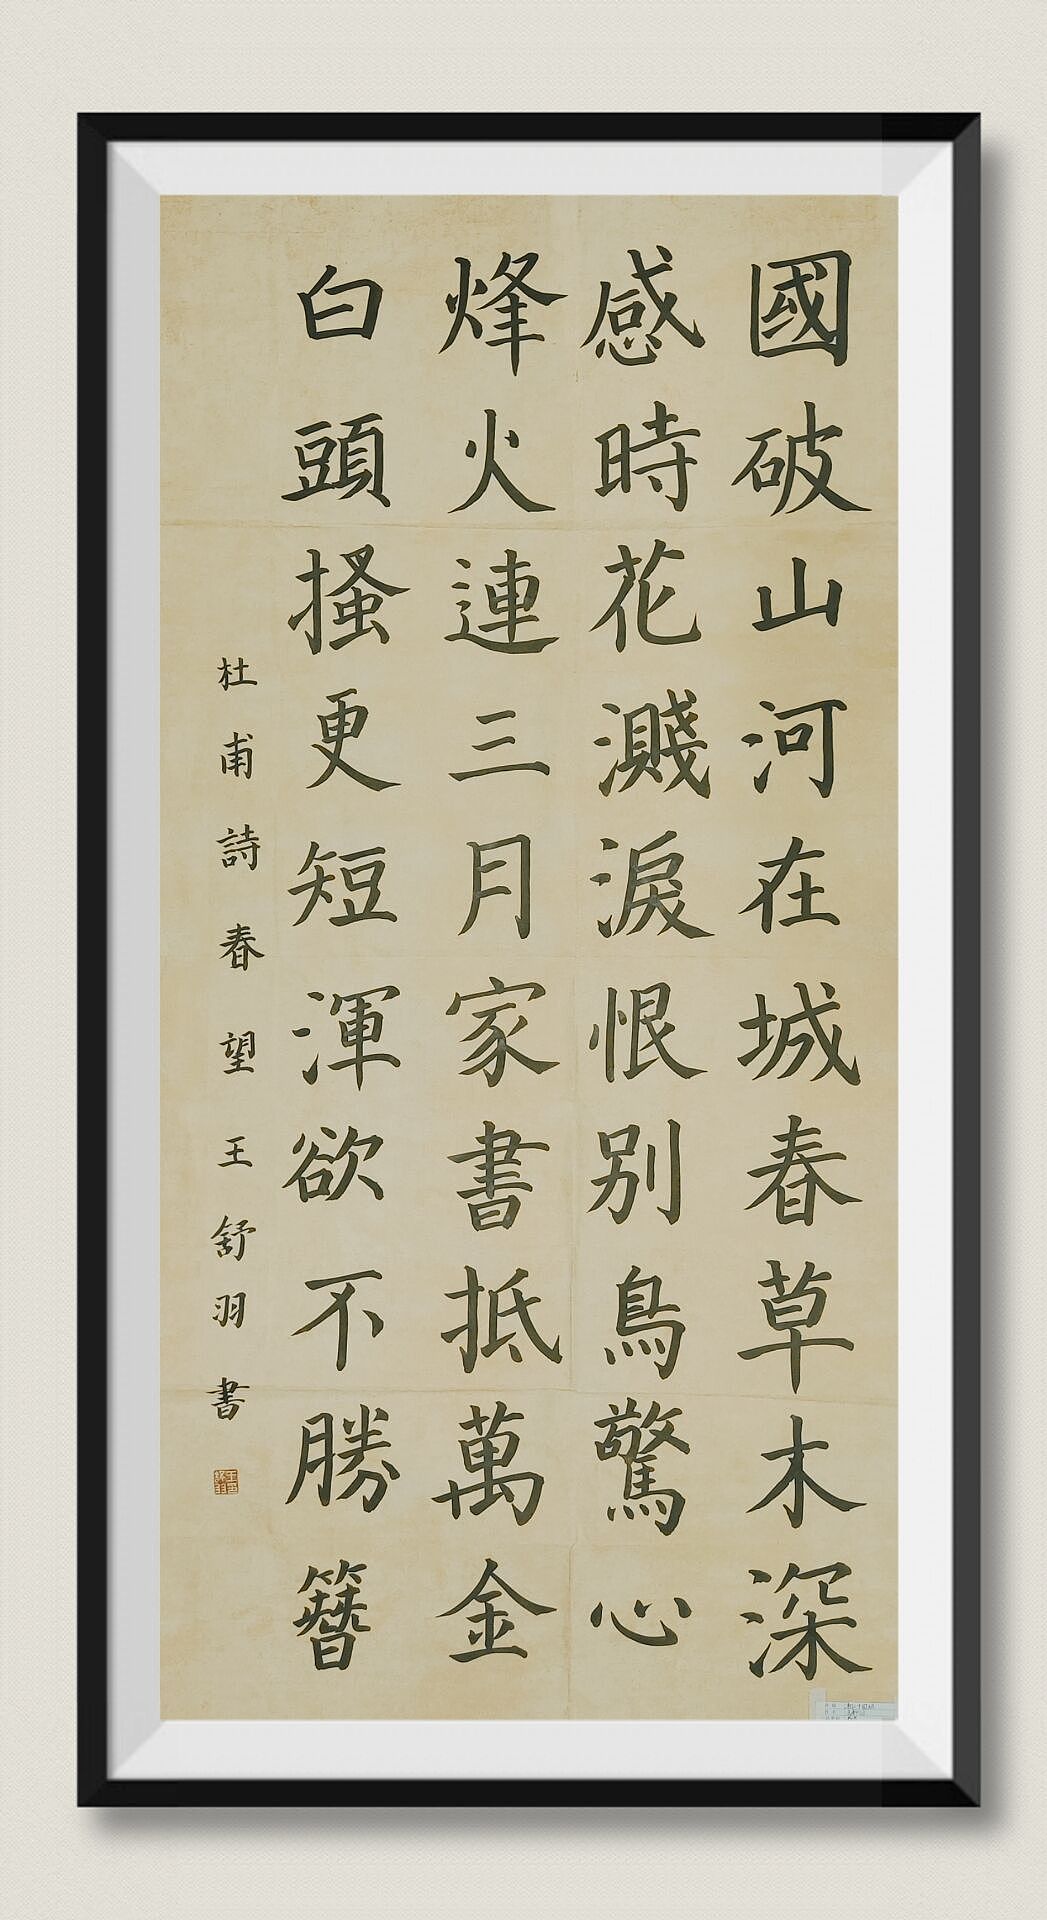 國破山河在城春草木深
感時花濺淚恨別鳥驚心
烽火連三月家書抵萬金
白頭搔更短渾欲不勝簪
杜甫詩春望王舒羽書